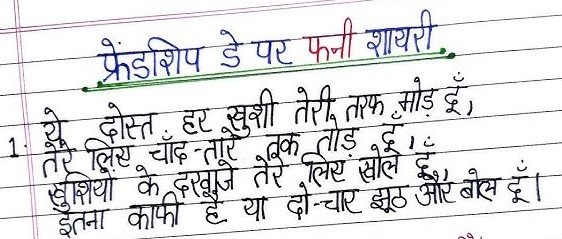 फ्रेंडशिप डे पर फनी शायरी
1. ये दोस्त हर खुशी तेरी तरफ मोड़ दूँ,
तेरे लिए चाँद-तारे तक तोड़ दूँ,
खुशियों के दरवाजे तेरे लिए खोल दूँ,
इतना काफी है या दो-चार झूठ और बोल दूँ।